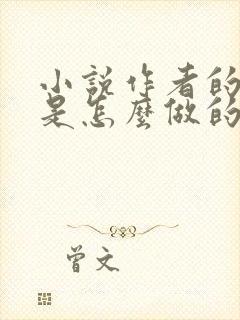 小説作者的
是怎麼做的
曾文